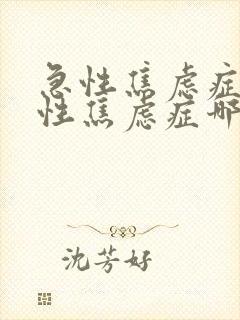 急性焦虑症
性焦虑症哪
沈芳好